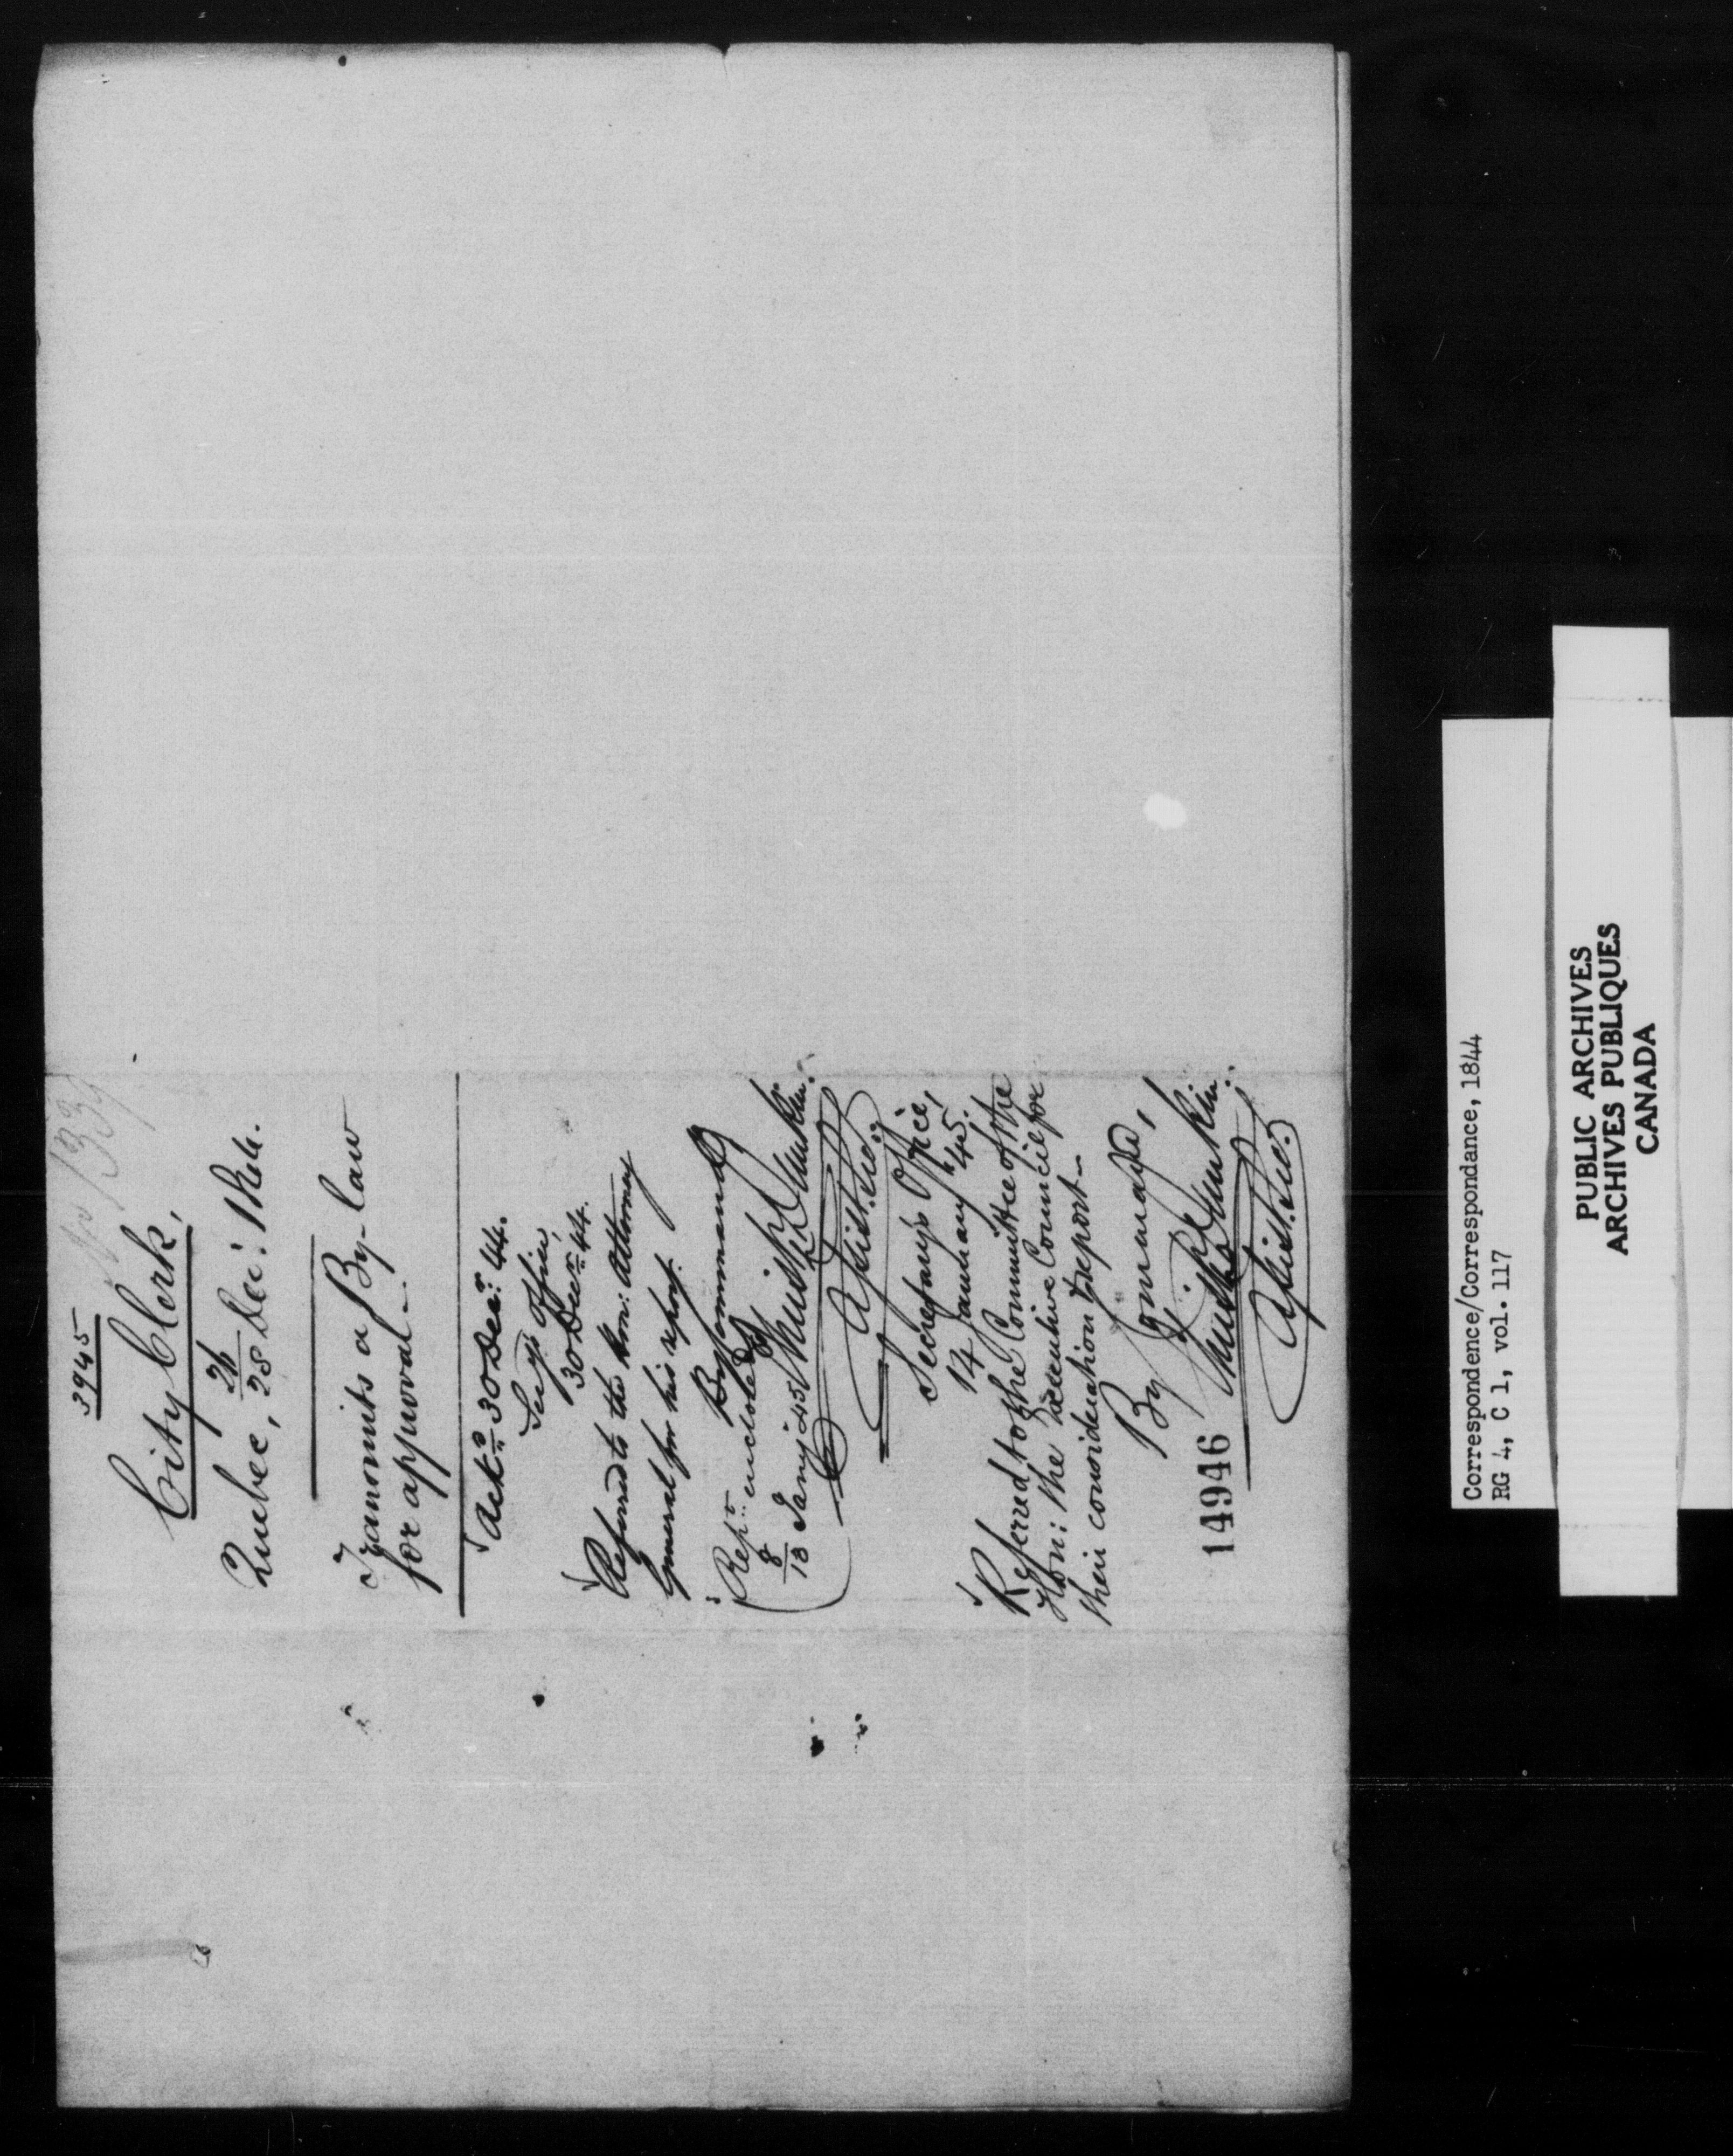 3945
No 139
City Clerk,
Quebec, 26/28 Dec: 1844.
Transmits a By-law
for approval.-
Ackd 30 Decr: 44.
Secy's Office,
30 Decr 44.
Referred to the Hon: Attorney
General for his report.
By Command
Repr: enclosed
8/13 Jany 45
Asist. Sec.
Secretary's Office,
14 January 45.
Referred to the Committee of the
Hon: the Executive Council for
their consideration & report-
By Command,
Asist. Sec.
14946
Correspondence/Correspondance, 1844
RG 4, C 1, vol. 117
PUBLIC ARCHIVES
ARCHIVES PUBLIQUES
CANADA